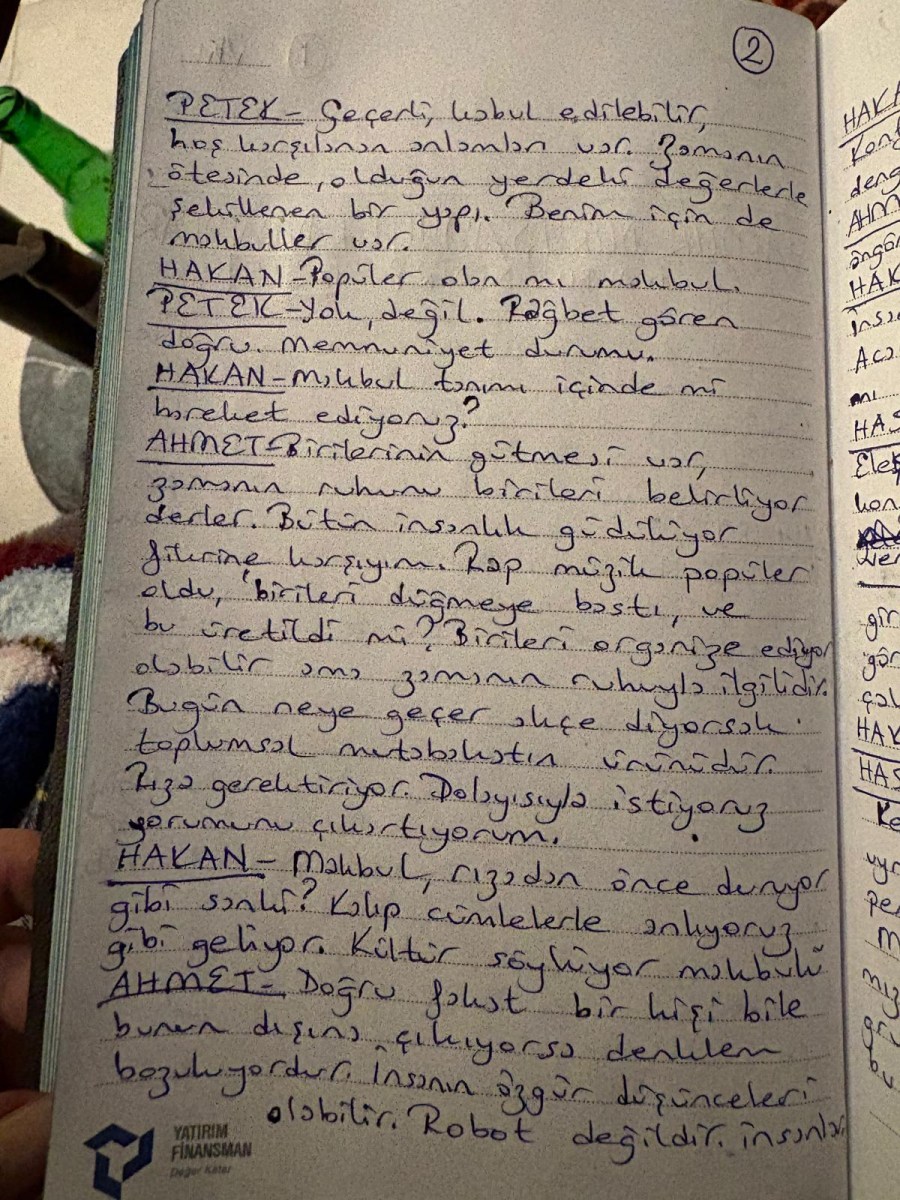 2
PETEK- Geçerli, kabul edilebilir,
hoş karşılanan anlamları var. Zamanın
ötesinde, olduğun yerdeki değerlerle
şekillenen bir yapı. Benim için de
makbuller var.
HAKAN-Popüler olan mı makbul.
PETEK-Yok, değil. Rağbet gören
doğru. Memnuniyet durumu.
HAKAN-Makbul tanımı içinde mi
hareket ediyoruz?
AHMET-Birilerinin gütmesi var,
zamanın ruhunu birileri belirliyor
derler. Bütün insanlık güdülüyor
fikrine karşıyım. Rap müzik popüler
oldu, birileri düğmeye bastı, ve
bu üretildi mi? Birileri organize ediyor
olabilir ama zamanın ruhuyla ilgilidir.
Bugün neye geçer akçe diyorsak
toplumsal mutabakatın ürünüdür.
Rıza gerektiriyor. Dolayısıyla istiyoruz
yorumunu çıkartıyorum.
HAKAN- Makbul, rızadan önce duruyor
gibi sanki? Kalıp cümlelerle anlıyoruz
gibi geliyor. Kültür söylüyor makbulü
AHMET- Doğru fakat bir kişi bile
bunun dışına çıkıyorsa denklem
bozuluyordur. İnsanın özgür düşünceleri
olabilir. Robot değildir. İnsanlar
YATIRIM
FİNANSMAN
Değer Katar
HAKA
Kont
deng
AHM
öngör
HAK
insa
Aca
mı
HAS
Eleş
kon
gir
gör
çal
HAK
HAS
Ke
uyr
Per
M
mız
gri
bu